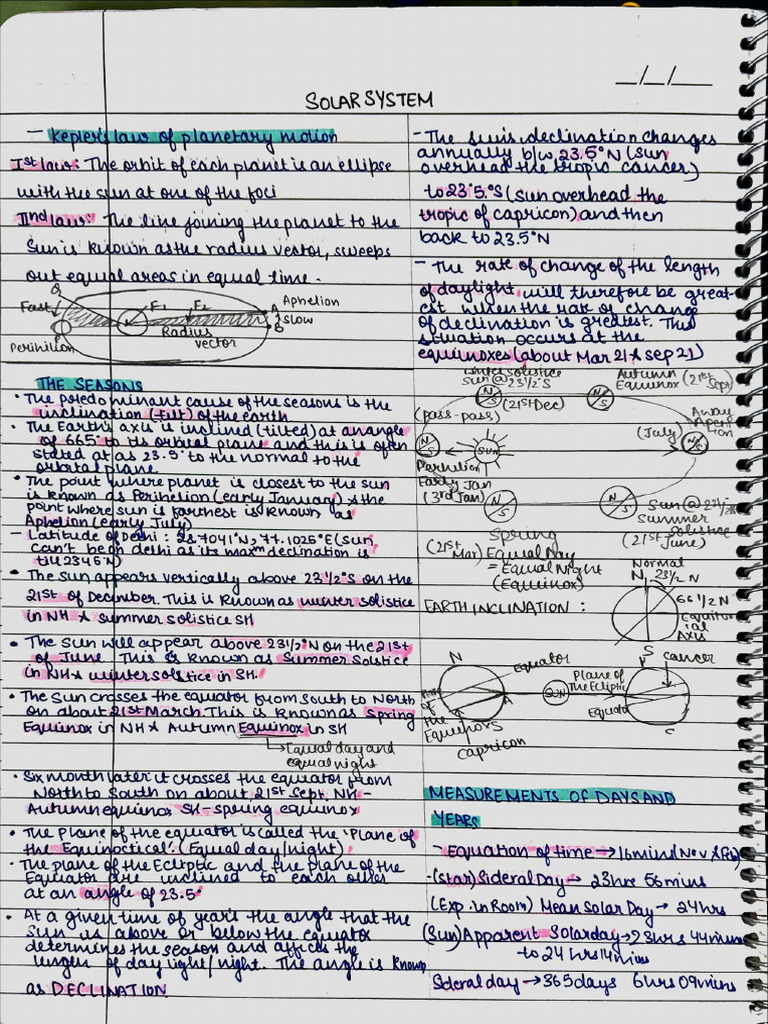 SOLAR SYSTEM
_/_/__
- Kepler's law of planetary motion
Ist law: The orbit of each planet is an ellipse
with the sun at one of the foci
IInd law: The line joining the planet to the
Sun is known as the radius vector, sweeps
out equal areas in equal time.
Fast
F1
F2
A
Aphelion
Slow
B
Radius
vector
Perihilion
THE SEASONS
• The predominant cause of the seasons is the
inclination (tilt) of the earth
• The Earth's axis is inclined (tilted) at an angle
of 66.5° to its orbital plane and this is often
stated at as 23.5° to the normal to the
orbital plane
• The point where planet is closest to the sun
is known as Perihelion (early January) & the
point where sun is farthest is known as
Aphelion (early July)
- Latitude of Delhi : 28.7041°N, 77.1025°E (Sun
can't be on delhi as its maxm declination is
till 23.45°N)
• The Sun appears vertically above 23½°S on the
21st of December. This is known as winter solistice
in NH & summer solistice SH
• The Sun will appear above 23½°N on the 21st
of June. This is known as Summer Solstice
in NH & winter solstice in SH.
• The Sun crosses the equator from South to North
on about 21st March. This is known as Spring
Equinox in NH & Autumn Equinox in SH
Equal day and
equal night
• Six month later it crosses the equator from
North to South on about 21st Sept. NH -
Autumn equinox SH - spring equinox
• The plane of the equator is called the 'Plane of
the Equinoctical'. (Equal day/night)
• The plane of the Ecliptic and the plane of the
Equator are inclined to each other
at an angle of 23.5°
• At a given time of years the angle that the
Sun is above or below the equator
determines the season and affects the
length of day light/night. The angle is known
as DECLINATION
- The sun's declination changes
annually b/w 23.5°N (sun
overhead the tropic cancer)
to 23.5°S (sun overhead the
tropic of capricon) and then
back to 23.5°N
- The rate of change of the length
of daylight will therefore be great-
est when the rate of change
of declination is greatest. This
situation occurs at the
equinoxes (about Mar 21 & Sep 21)
Winter solistice
Sun @ 23½°S
(21st Dec)
Autumn
Equinox (21st Sept)
(pass-pass)
Away
(July)
N
S
SUN
Perihelion
Early Jan
(3rd Jan)
Spring
(21st Mar) Equal Day
= Equal Night
(Equinox)
Summer
solistice
(21st June)
EARTH INCLINATION :
Normal
N
23½ N
66½ N
Equitor
ial
Axis
S
N
Equator
Plane of
The Ecliptic
SUN
Cancer
of
the
Equinox
S
A
Capricon
MEASUREMENTS OF DAYS AND
YEARS
- Equation of time → 16 mins (Nov & Feb)
- (Star) Sideral Day → 23 hrs 56 mins
(Exp. in Room) Mean Solar Day → 24 hrs
(Sun) Apparent Solar day → 23 hrs 44 mins
to 24 hrs 14 mins
Sideral day → 365 days 6 hrs 09 mins